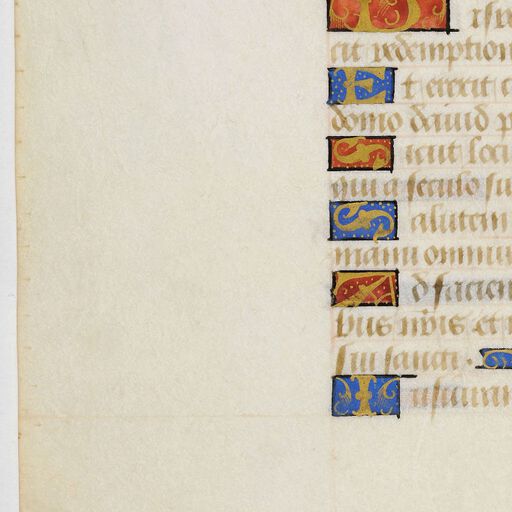 cit redemption
Et erexit c
domo dauid p
Sicut locu
qui a seculo su
Salutem
manu omniu
Ad facien
bus nr̄is et
sui sancti.
Iusiuran